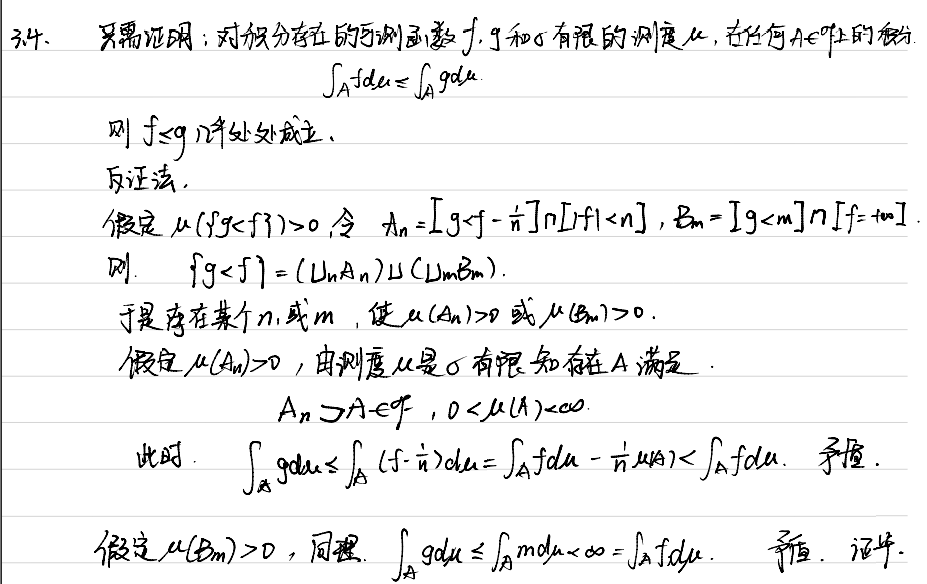 3.4、 只需证明：对积分存在的可测函数 f, g 和 σ 有限的测度 μ, 在任何 A∈𝓕 上的积分
∫_A fdμ ≤ ∫_A gdμ.
则 f≤g 几乎处处成立、
反证法、
假定 μ({g<f})>0, 令 A_n = [g<f-1/n]∩[|f|<n], B_m = [g<m]∩[f=+∞].
则. {g<f} = (∪_n A_n)∪(∪_m B_m).
于是存在某个 n, 或 m, 使 μ(A_n)>0 或 μ(B_m)>0.
假定 μ(A_n)>0, 由测度 μ 是 σ 有限知存在 A 满足.
A_n ⊃ A∈𝓕, 0<μ(A)<∞.
此时. ∫_A gdμ ≤ ∫_A (f-1/n)dμ = ∫_A fdμ - 1/n μ(A) < ∫_A fdμ. 矛盾.
假定 μ(B_m)>0, 同理. ∫_A gdμ ≤ ∫_A mdμ<∞ = ∫_A fdμ. 矛盾. 证毕.